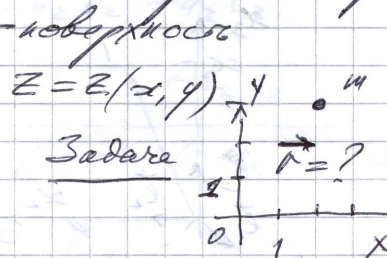 -поверхность
z = z(x, y)
y
m
Задача
r⃗ = ?
1
0
1
x